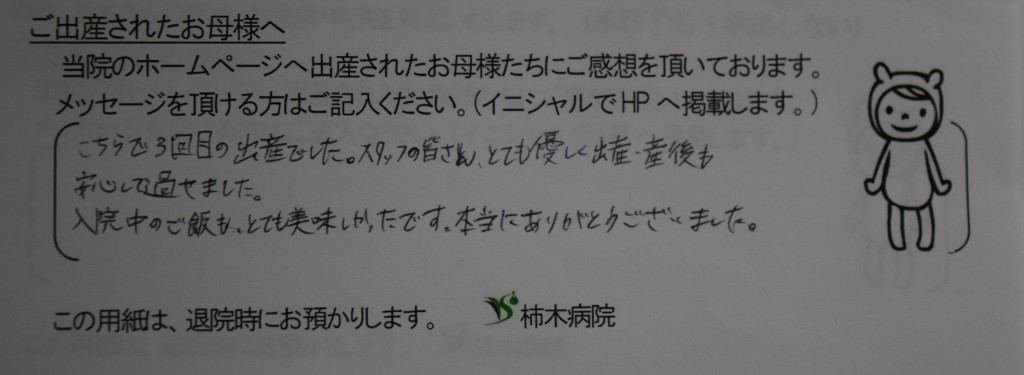 ご出産されたお母様へ
当院のホームページへ出産されたお母様たちにご感想を頂いております。
メッセージを頂ける方はご記入ください。(イニシャルでHPへ掲載します。)
こちらで3回目の出産でした。スタッフの皆さん、とても優しく出産・産後も
安心して過せました。
入院中のご飯も、とても美味しかったです。本当にありがとうございました。
この用紙は、退院時にお預かりします。
柿木病院